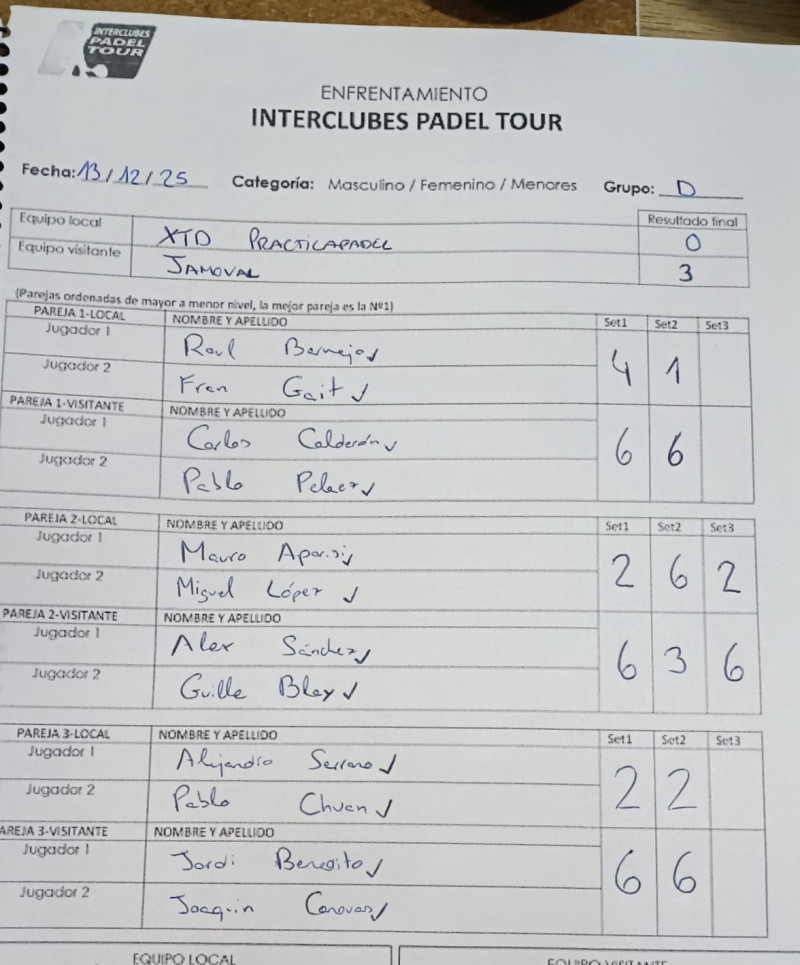 INTERCLUBES
PADEL
TOUR
ENFRENTAMIENTO
INTERCLUBES PADEL TOUR
Fecha: 13/12/25 Categoría: Masculino / Femenino / Menores Grupo: D
Equipo local XTD PRACTICAPADEL Resultado final 0
Equipo visitante JAMOVAL 3
(Parejas ordenadas de mayor a menor nivel, la mejor pareja es la Nº1)
PAREJA 1-LOCAL NOMBRE Y APELLIDO Set1 Set2 Set3
Jugador 1 Raul Bermejo 4 1
Jugador 2 Fran Gait
PAREJA 1-VISITANTE NOMBRE Y APELLIDO
Jugador 1 Carlos Calderón 6 6
Jugador 2 Pablo Pelaez
PAREJA 2-LOCAL NOMBRE Y APELLIDO Set1 Set2 Set3
Jugador 1 Mauro Aparisi 2 6 2
Jugador 2 Miguel López
PAREJA 2-VISITANTE NOMBRE Y APELLIDO
Jugador 1 Alex Sánchez 6 3 6
Jugador 2 Guille Blay
PAREJA 3-LOCAL NOMBRE Y APELLIDO Set1 Set2 Set3
Jugador 1 Alejandro Serrano 2 2
Jugador 2 Pablo Chuan
AREJA 3-VISITANTE NOMBRE Y APELLIDO
Jugador 1 Jordi Benegito 6 6
Jugador 2 Joaquin Canovas
EQUIPO LOCAL EQUIPO VISITANTE